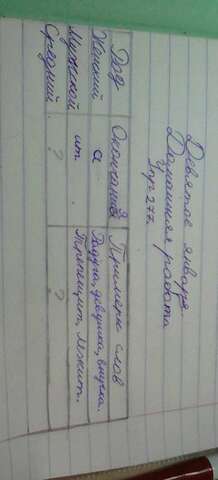 Девятое января.
Домашняя работа
Упр 277.
Род Окончание Примеры слов
Женский а Радуга, девушка, внучка.
Мужской ит. Трепещит, лежит.
Средний ? ?